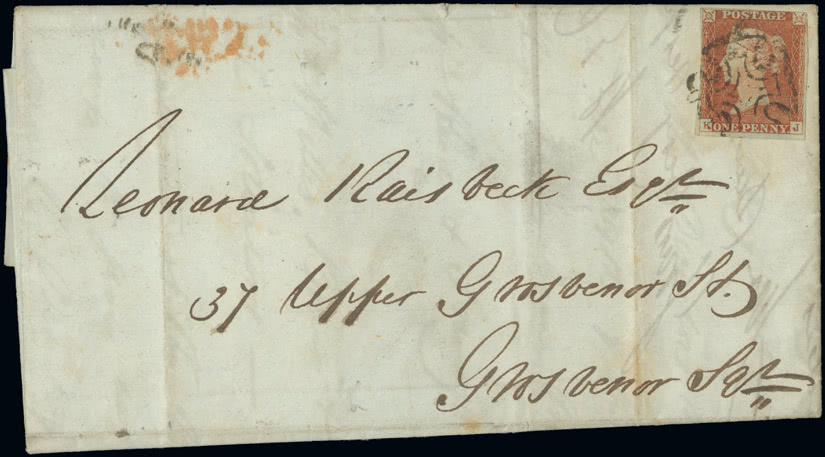 POSTAGE
K ONE PENNY J
Leonard Raisbeck Esqr
37 Upper Grosvenor St.
Grosvenor Sqr